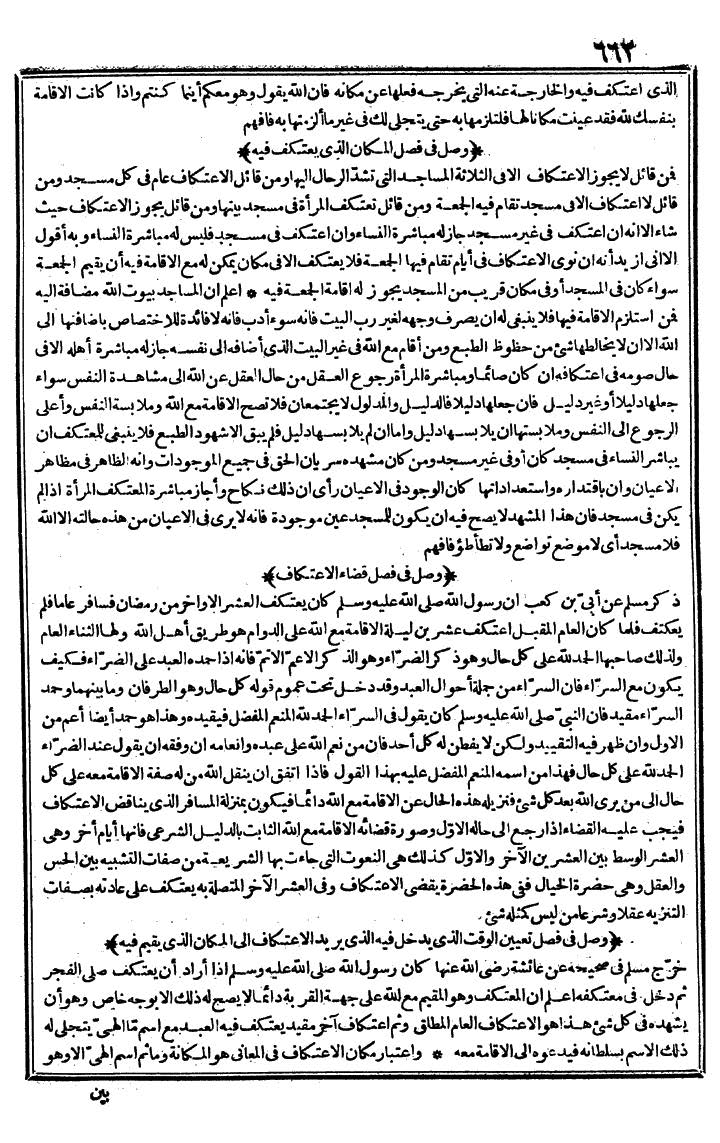 ٦٦٣
الذى اعتكف فيه والخارجة عنه التى يخرجه فعلها عن مكانه فان الله يقول وهو معكم أينما كنتم واذا كانت الاقامة
بنفسك لله فقد عينت مكانا لها فلتلزمها به حتى يتجلى لك فى غير ما ألزمتها به فافهم
﴿وصل فى فصل المكان الذى يعتكف فيه﴾
فمن قائل لا يجوز الاعتكاف الا فى الثلاثة المساجد التى تشد الرحال اليها ومن قائل الاعتكاف عام فى كل مسجد ومن
قائل لا اعتكاف الا فى مسجد تقام فيه الجمعة ومن قائل تعتكف المرأة فى مسجد بيتها ومن قائل يجوز الاعتكاف حيث
شاء الا انه ان اعتكف فى غير مسجد جاز له مباشرة النساء وان اعتكف فى مسجد فليس له مباشرة النساء وبه أقول
الا انى أزيد أنه ان نوى الاعتكاف فى أيام تقام فيها الجمعة فلا يعتكف الا فى مكان يمكن له مع الاقامة فيه أن يقيم الجمعة
سواء كان فى المسجد أو فى مكان قريب من المسجد يجوز له اقامة الجمعة فيه * اعلم ان المساجد بيوت الله مضافة اليه
فمن استلزم الاقامة فيها فلا ينبغى له ان يصرف وجهه لغير رب البيت فانه سوء أدب فانه لا فائدة للاختصاص باضافتها الى
الله الا ان لا يخالطها شئ من حظوظ الطبع ومن أقام مع الله فى غير البيت الذى أضافه الى نفسه جاز له مباشرة أهله الا فى
حال صومه فى اعتكافه ان كان صائما ومباشرة المرأة رجوع العقل من حال العقل عن الله الى مشاهدة النفس سواء
جعلها دليلا أو غير دليل فان جعلها دليلا فالدليل والمدلول لا يجتمعان فلا تصح الاقامة مع الله وملابسة النفس وأعلى
الرجوع الى النفس وملابستها ان يلابسها دليل واما ان لم يلابسها دليل فلم يبق الا شهود الطبع فلا ينبغى للمعتكف ان
يباشر النساء فى مسجد كان أو فى غير مسجد ومن كان مشهده سريان الحق فى جميع الموجودات وانه الظاهر فى مظاهر
الاعيان وان باقتداره واستعداداتها كان الوجود فى الاعيان رأى ان ذلك نكاح وأجاز مباشرة المعتكف المرأة اذا لم
يكن فى مسجد فان هذا المشهد لا يصح فيه ان يكون للمسجد عين موجودة فانه لا يرى فى الاعيان من هذه حالته الا الله
فلا مسجد أى لا موضع تواضع ولا تطأطؤ فافهم
﴿وصل فى فصل قضاء الاعتكاف﴾
ذكر مسلم عن أبىّ بن كعب ان رسول الله صلى الله عليه وسلم كان يعتكف العشر الاواخر من رمضان فسافر عاما فلم
يعتكف فلما كان العام المقبل اعتكف عشرين ليلة الاقامة مع الله على الدوام هو طريق أهل الله ولها الثناء العام
ولذلك صاحبها الحمد لله على كل حال وهو ذكر الضرّاء وهو الذكر الاعم الاتم فانه اذا حمده العبد على الضرّاء فكيف
يكون مع السرّاء فان السرّاء من جملة أحوال العبد وقد دخل تحت عموم قوله كل حال وهو الطرفان وما بينهما وحمد
السرّاء مقيد فان النبىّ صلى الله عليه وسلم كان يقول فى السرّاء الحمد لله المنعم المفضل فيقيده وهذا هو حمد أيضا أعم من
الاول وان ظهر فيه التقييد ولكن لا يفطن له كل أحد فان من نعم الله على عبده وانعامه ان وفقه ان يقول عند الضرّاء
الحمد لله على كل حال فهذا من اسمه المنعم المفضل عليه بهذا القول فاذا اتفق ان ينقل الله من له صفة الاقامة معه على كل
حال الى من يرى الله بعد كل شئ فتزيله هذه الحال عن الاقامة مع الله دائما فيكون بمنزلة المسافر الذى يناقض الاعتكاف
فيجب عليه القضاء اذا رجع الى حاله الاول وصورة قضائه الاقامة مع الله الثابت بالدليل الشرعى فانها أيام أخر وهى
العشر الوسط بين العشرين الآخر والاوّل كذلك هى النعوت التى جاءت بها الشريعة من صفات التشبيه بين الحس
والعقل وهى حضرة الخيال ففى هذه الحضرة يقضى الاعتكاف وفى العشر الآخر المتصلة به يعتكف على عادته بصفات
التنزيه عقلا وشرعا من ليس كمثله شئ
﴿وصل فى فصل تعيين الوقت الذى يدخل فيه الذى يريد الاعتكاف الى المكان الذى يقيم فيه﴾
خرّج مسلم فى صحيحه عن عائشة رضى الله عنها كان رسول الله صلى الله عليه وسلم اذا أراد أن يعتكف صلى الفجر
ثم دخل فى معتكفه اعلم ان المعتكف وهو المقيم مع الله على جهة القربة دائما لا يصح له ذلك الا بوجه خاص وهو أن
يشهده فى كل شئ هذا هو الاعتكاف العام المطلق وثم اعتكاف آخر مقيد يعتكف فيه العبد مع اسم ما الهىّ يتجلى له
ذلك الاسم بسلطانه فيدعوه الى الاقامة معه * واعتبار مكان الاعتكاف فى المعانى هو المكانة وما ثم اسم الهىّ الا وهو
بين